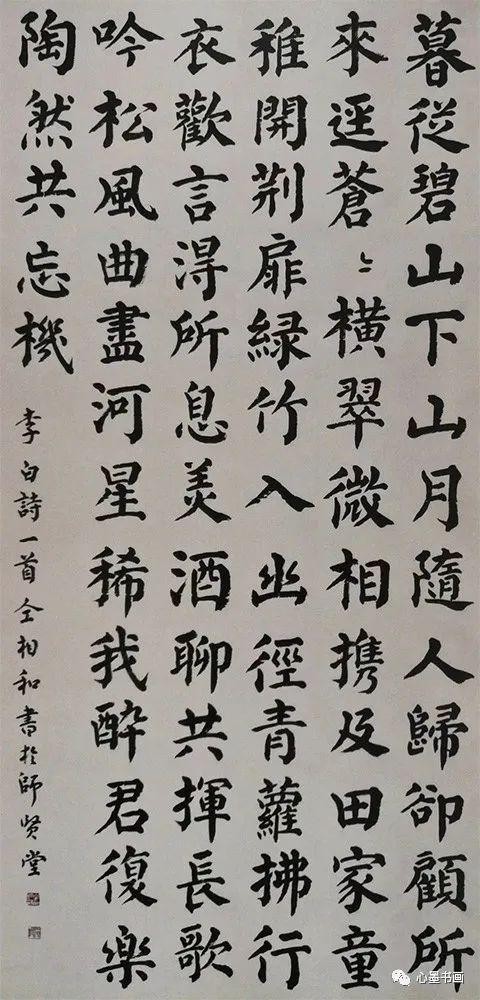 暮從碧山下山月隨人歸卻顧所
來逕蒼〻橫翠微相携及田家童
稚開荆扉緑竹入幽徑青蘿拂行
衣歡言淂所息美酒聊共揮長歌
吟松風曲盡河星稀我醉君復樂
陶然共忘機
李白詩一首仝相和書於師賢堂
心墨书画